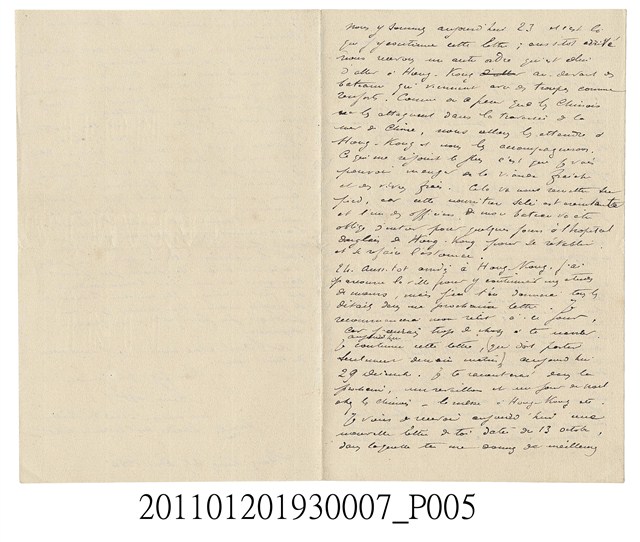 nous y sommes aujourd'hui 23 et c'est là
que je continue cette lettre ; aussitôt arrivé
nous recevons un autre ordre qui est celui
d'aller à Hong-Kong au devant des
bateaux qui viennent avec des troupes comme
renforts. Comme on a peur que les Chinois
ne les attaquent dans la traversée de la
mer de Chine, nous allons les attendre à
Hong-Kong et nous les accompagnerons.
Ce qui me réjouit le plus c'est que je vais
pouvoir manger de la viande fraîche
et des vivres frais. Cela va nous remettre sur
pied, car cette nourriture salée est
et l'un des officiers de mon bateau va être
obligé d'entrer pour quelques jours à l'hôpital
anglais de Hong-Kong pour se rétablir
et se refaire l'estomac.
24. Aussitôt arrivé à Hong Kong, j'ai
parcouru la ville pour y continuer mes études
de mœurs, mais je t'en donnerai tous les
détails dans ma prochaine lettre. Je
recommencerai mon récit à ce jour,
car j'aurais trop de choses à te raconter.
aujourd'hui
Je continue cette lettre, (qui doit partir
seulement demain matin) aujourd'hui
29 Décembre. Je te raconterai dans la
prochaine, un réveillon et un jour de Noël
chez les Chinois à Hong-Kong etc.
Je viens de recevoir aujourd'hui une
nouvelle lettre de toi datée du 13 octobre,
dans laquelle tu me donnes de meilleures
201101201930007_P005